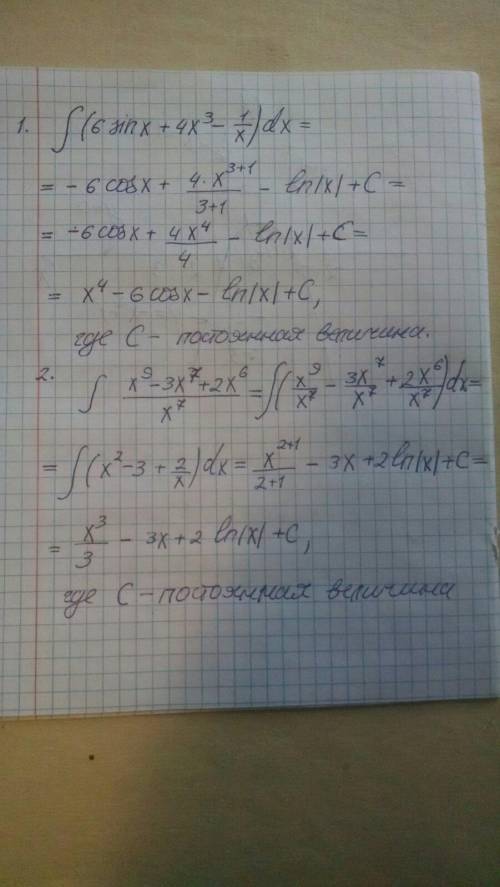 1. ∫(6 sin x + 4x³ − 1/x) dx =
= − 6 cos x + 4·x³⁺¹/3+1 − ln|x| + C =
= −6 cos x + 4x⁴/4 − ln|x| + C =
= x⁴ − 6 cos x − ln|x| + C,
где C − постоянная величина.
2. ∫ x⁹ − 3x⁷ + 2x⁶/x⁷ = ∫(x⁹/x⁷ − 3x⁷/x⁷ + 2x⁶/x⁷) dx =
= ∫(x² − 3 + 2/x) dx = x²⁺¹/2+1 − 3x + 2 ln|x| + C =
= x³/3 − 3x + 2 ln|x| + C,
где C − постоянная величина